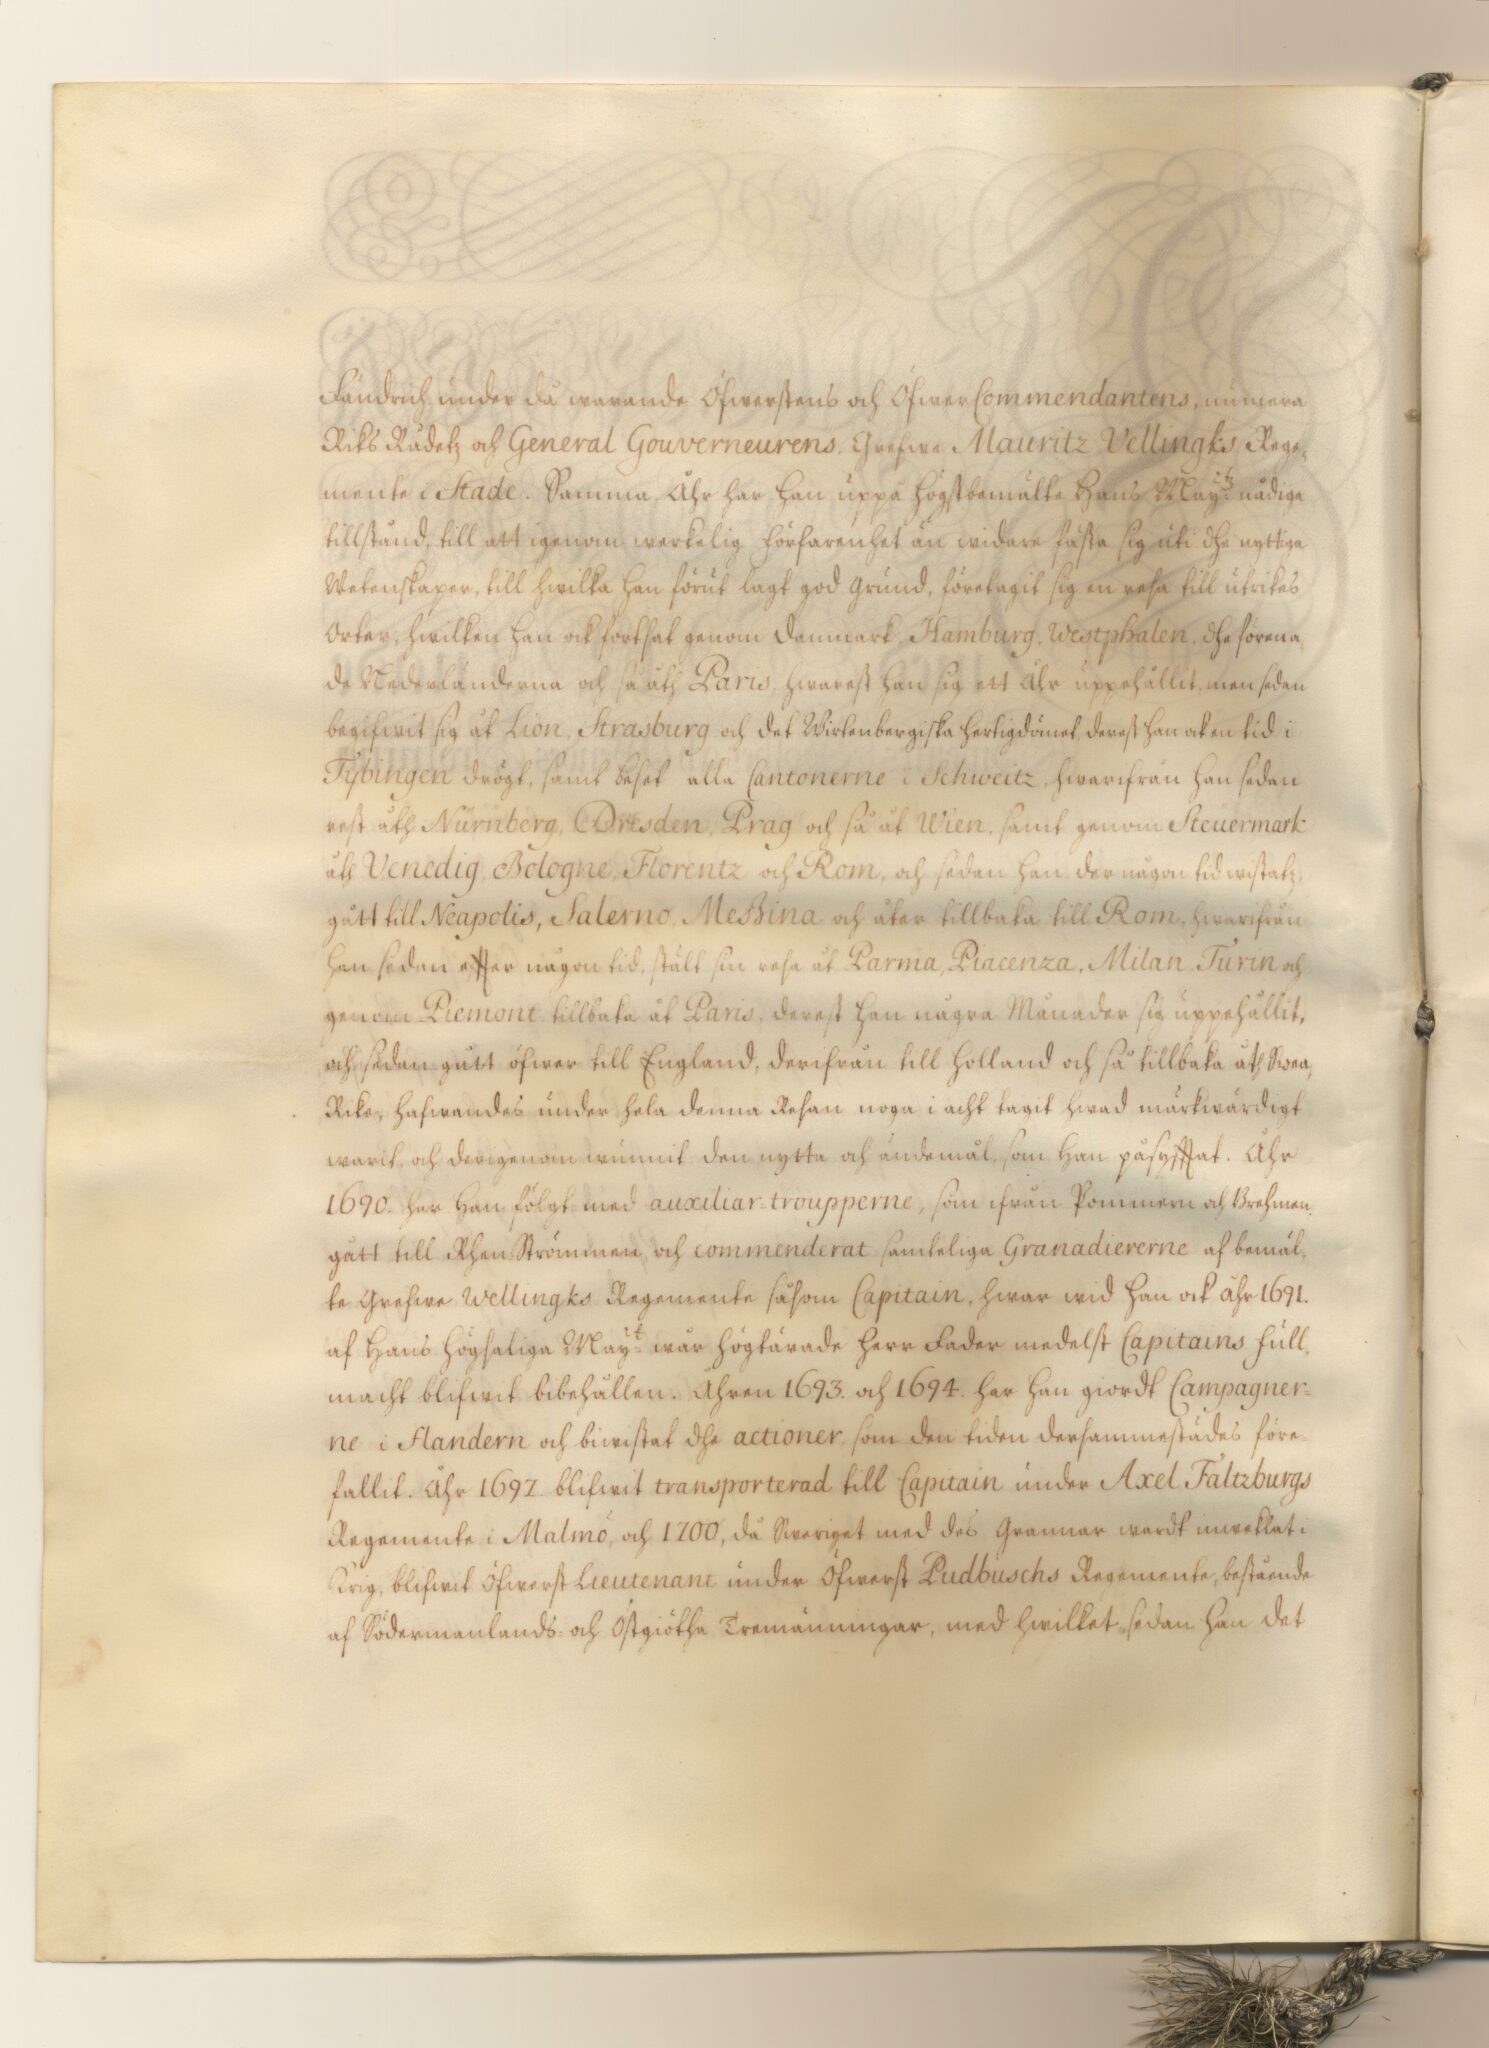 Fändrich under då warande Öfwerstens och ÖfwerCommendantens, numera
Riks Rådetz och General Gouverneurens, Grefwe Mauritz Vellingks Rege-
mente i Stade. Samma Åhr har han uppå högstbemälte Hans May:tz nådige
tillstånd, till att igenom werkelig förfarenhet än widare fästa sig uti dhe nyttige
Wetenskaper, till hwilka han förut lagt god grund, företagit sig en resa till utrikes
Orter, hwilken han ock fortsat genom Danmark, Hamburg, Westphalen, dhe förena-
de Nederländerna och så åth Paris, hwarest han sig ett Åhr uppehållit, men sedan
begifwit sig åt Lion, Strasburg och det Wirtenbergiska Hertigdömet, derest han ock en tid i
Tybingen drögt, samt beset alla Cantonerne i Schweitz, hwarifrån han sedan
rest åth Nürnberg, Dresden, Prag och så åt Wien, samt genom Steüermark
åth Venedig, Bologne, Florentz och Rom, och sedan han der någon tid wistatz,
gått till Neapolis, Salerno, Meßina och åter tillbaka till Rom, hwarifrån
han sedan efter någon tid, stält sin resa åt Parma, Piacenza, Milan, Turin och
genom Piemont tillbaka åt Paris, derest han några Månader sig uppehållit,
och sedan gått öfwer till England, derifrån till Holland och så tillbaka åth Swea
Rike, hafwandes under hela denna Resan noga i acht tagit hwad märkwärdigt
warit, och derigenom wunnit den nytta och ändemål, som Han påsyfftat. Åhr
1690. har Han fölgt med auxiliar-troupperne, som ifrån Pommern och Brehmen
gått till Rhen Strömmen, och commenderat samtelige Granadiererne af bemäl-
te Grefwe Wellingks Regemente såsom Capitain, hwar wid han ock åhr 1691.
af Hans Högsaliga May:t wår högtärade Herr Fader medelst Capitains full-
macht blifwit bibehållen. Åhren 1693. och 1694. har han giordt Campagner-
ne i Flandern och biwistat dhe actioner, som den tiden dersammestädes före-
fallit. Åhr 1697. blifwit transporterad till Capitain under Axel Faltzburgs
Regemente i Malmö, och 1700, då Sweriget med des Grannar wardt inweklat i
Krig, blifwit Öfwerst Lieutenant under Öfwerst Pudbuschs Regemente, bestående
af Södermanlands- och Östgiötha Tremänningar, med hwilket sedan han det